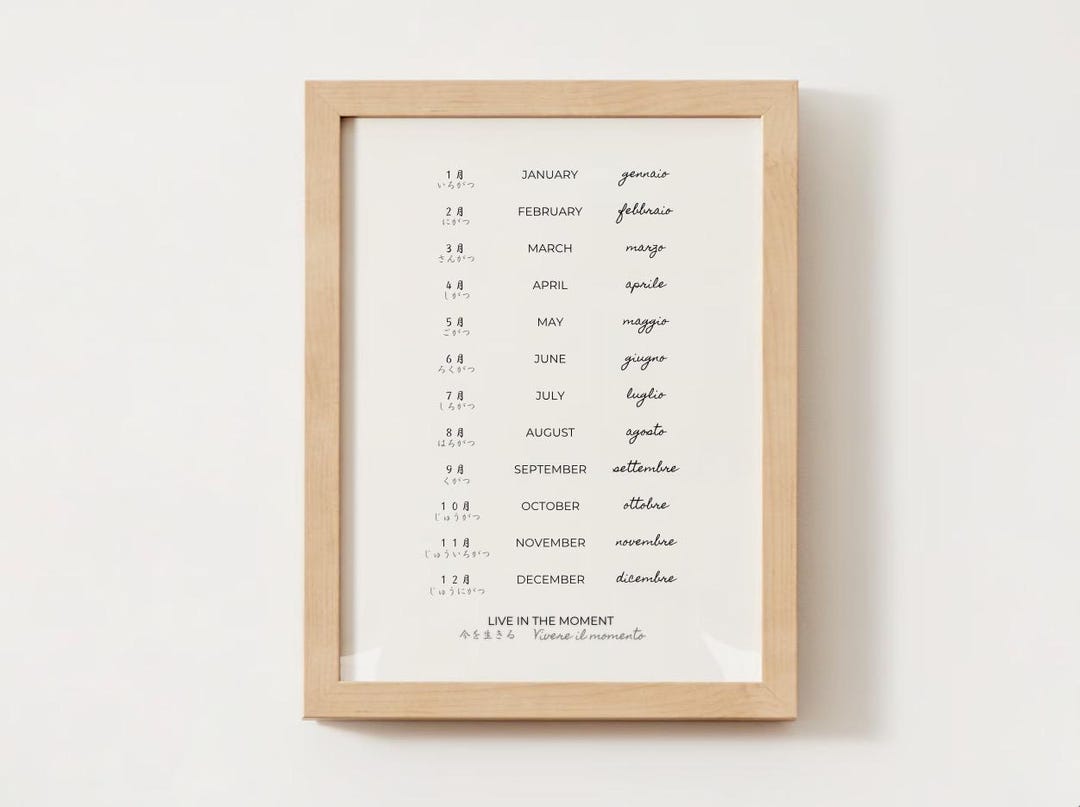 1月 JANUARY gennaio
いちがつ
2月 FEBRUARY febbraio
にがつ
3月 MARCH marzo
さんがつ
4月 APRIL aprile
しがつ
5月 MAY maggio
ごがつ
6月 JUNE giugno
ろくがつ
7月 JULY luglio
しちがつ
8月 AUGUST agosto
はちがつ
9月 SEPTEMBER settembre
くがつ
10月 OCTOBER ottobre
じゅうがつ
11月 NOVEMBER novembre
じゅういちがつ
12月 DECEMBER dicembre
じゅうにがつ
LIVE IN THE MOMENT
今を生きる Vivere il momento